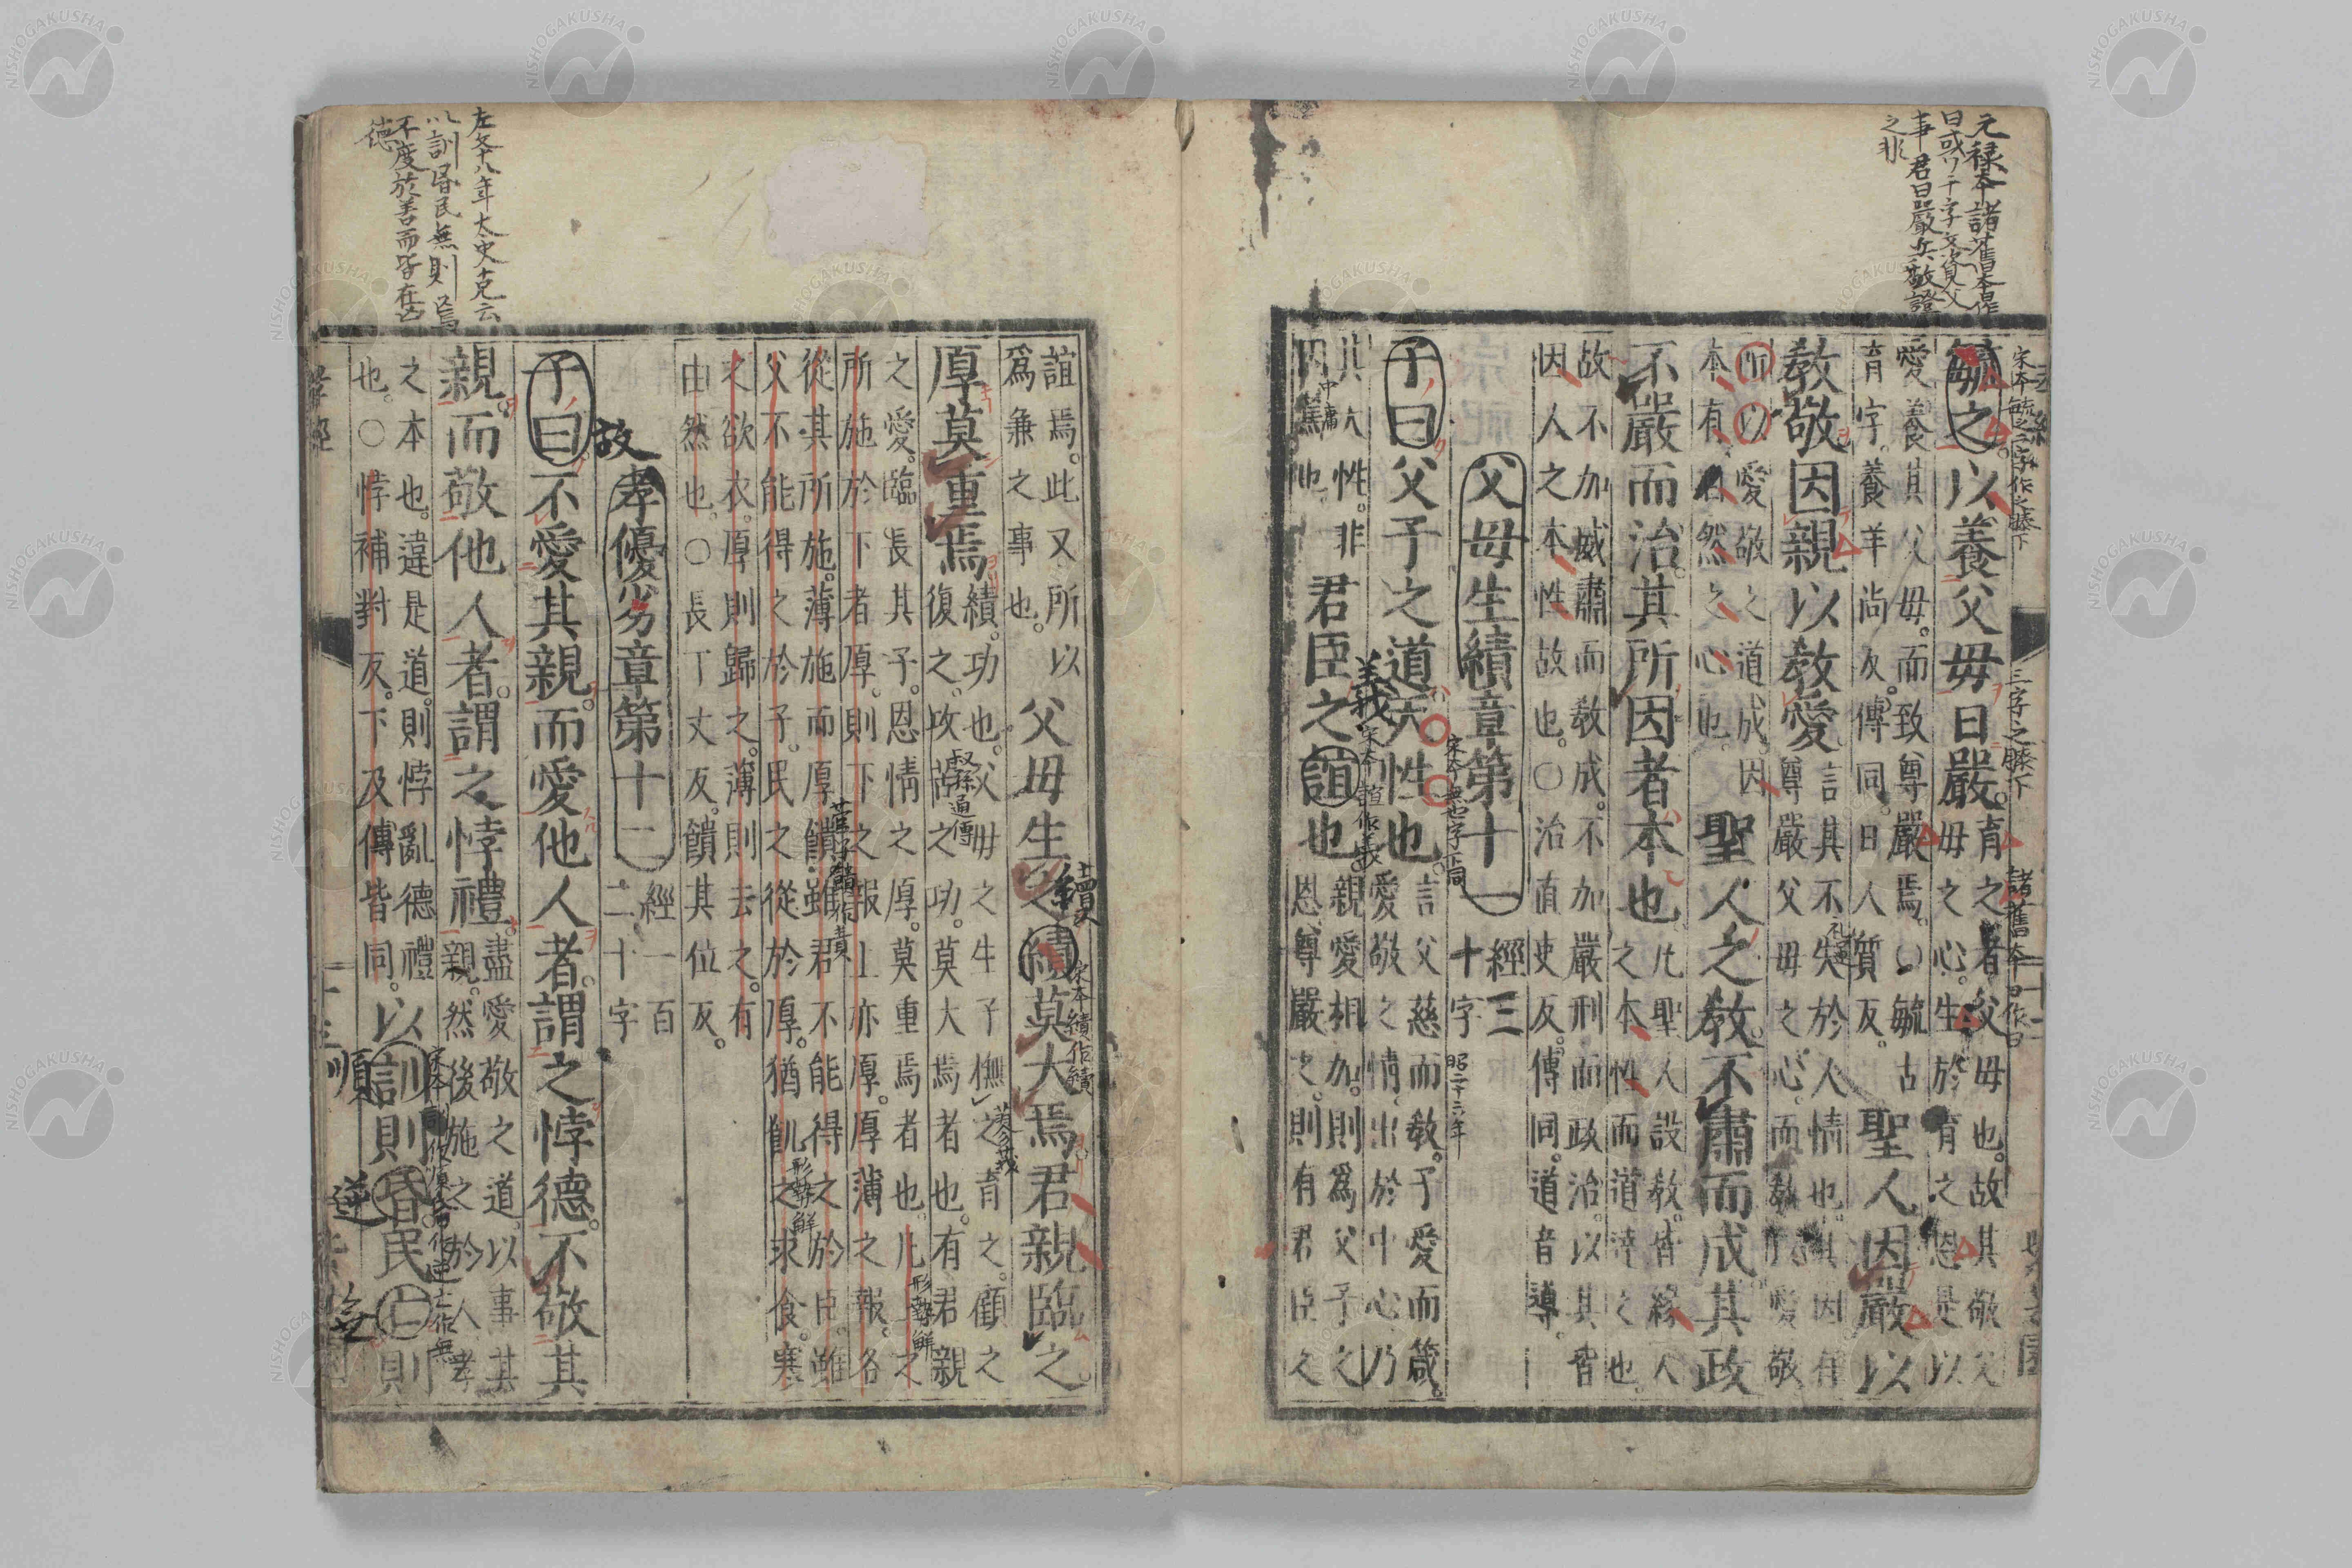 元禄本諸舊本作
日或ハ千字文資父
事君曰嚴与敬證
之非
宋本毓之二字作之膝下
三字之膝下
諸舊本日作曰
毓之以養父母日嚴。育之者父母也。故其敬父
母之心。生於育之恩。是以
愛養其父母。而致尊嚴焉。○毓古
育字。養羊尚反。傳同。日人質反。
聖人因嚴以
教敬因親以教愛言其不失於人情也。其因有
尊嚴父母之心。而教以愛敬
所以愛敬之道成。因
本有自然之心也。
聖人之教。不肅而成其政
不嚴而治。其所因者本也凡聖人設教。皆緣人
之本性。而道達之也。
故不加威肅而教成。不加嚴刑而政治。以其皆
因人之本性故也。○治直吏反。傳同。道音導。
父母生績章第十一
經三
十字
昭二十六年
子曰父子之道天性也。言父慈而教。子愛而箴。
愛敬之情。出於中心乃
宋本無也字正同
義
宋本誼作義
其天性。非
因篤也
中庸
君臣之誼也親愛相加。則爲父子之
恩。尊嚴之。則有君臣之
誼焉。此又所以
爲兼之事也。
父母生之績莫大焉君親臨之。
續
宋本績作續
厚莫重焉績。功也。父母之生子。撫之育之。顧之
復之。攻苦之功。莫大焉者也。有君親
叔孫通傳
蓼莪
之愛。臨長其子。恩情之厚。莫重焉者也。凡上之
所施於下者厚。則下之報上亦厚。厚薄之報。各
形勢解
從其所施。薄施而厚饋。雖君不能得之於臣。雖
父不能得之於子。民之從於厚。猶飢之求食。寒
管子饋作責
形勢解
之欲衣。厚則歸之。薄則去之。有
由然也。○長丁丈反。饋其位反。
故
孝優劣章第十二
經一百
二十字
子曰不愛其親。而愛他人者。謂之悖德。不敬其
親。而敬他人者。謂之悖禮。盡愛敬之道。以事其
親。然後施之於人。孝
之本也。違是道。則悖亂德禮
也。○悖補對反。下及傳皆同。
以訓則昏民亡則
順
逆
無
左文十八年太史克云
以訓昏民無則焉
不度於善而皆在凶
德